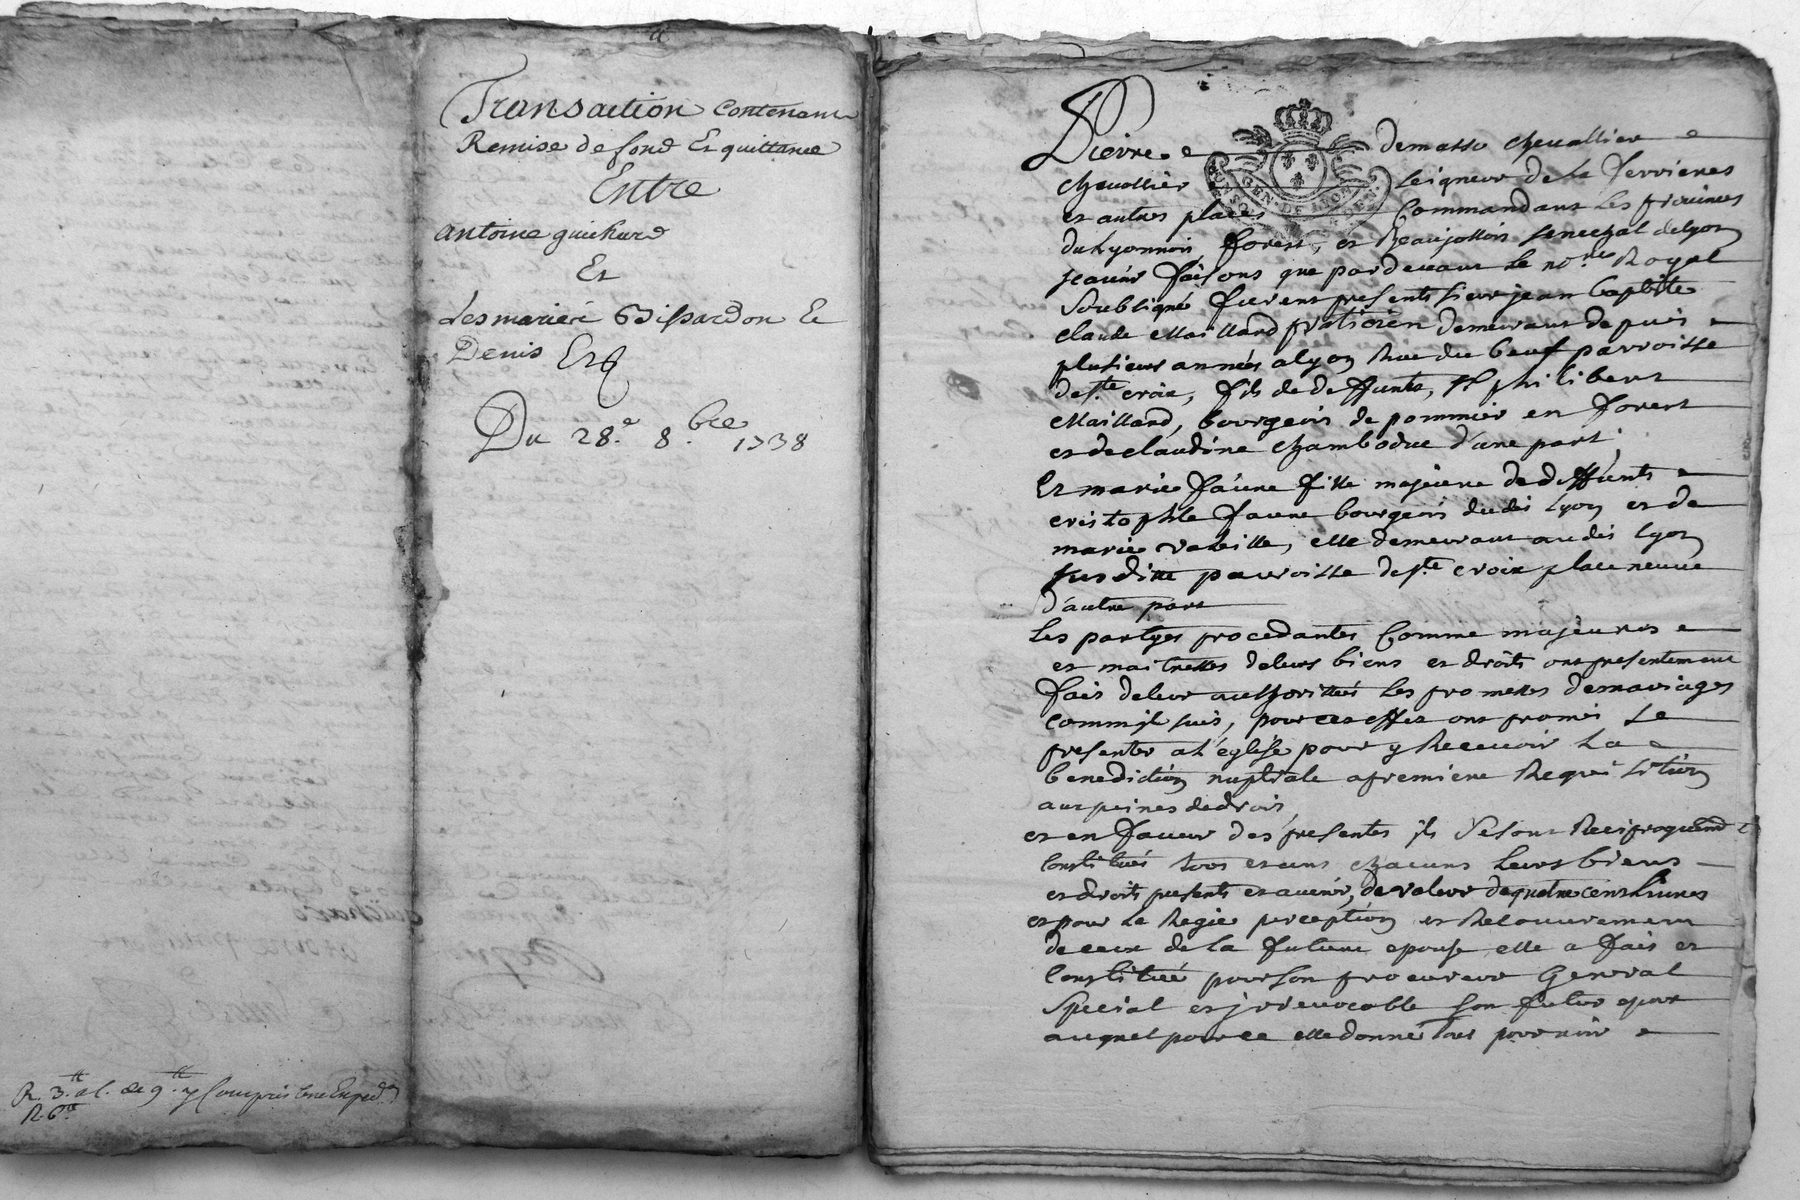 Transaction Contenant
Remise de fond Et quittance
Entre
antoine guichard
Et
Les mariés Bissardon Et
Denis
Du 28.e 8.bre 1738
R. 3.tt de 9.tt y Compris Exped.
Pierre demasso chevallier
chevallier seigneur de la ferrieres
et autres places Commandant Les provinces
GEN. DE LYON
du Lyonnois forest, et Beaujollois senechal de lyon
scavoir faisons que pardevant le no.re Royal
soubsigné furent presents sieur jean baptiste
claude Maillard praticien demeurant depuis
plusieurs années a lyon Rue du beuf parroisse
de s.te croix, fils de deffunts, s.r philibert
Maillard, bourgeois de pommier en forest
et de claudine chambodue d'une part,
Et marie faune fille majeure de deffunts
cristophle faune bourgeois dudit Lyon et de
marie elle demeurant audit lyon
susditte parroisse de s.te croix place neuve
d'autre part
Les partyes procedantes Comme majeures
et maitresses de leurs biens et droits ont presentement
fait de leur authorittés les promesses de mariages
comm'il suit, pour cet effet ont promis se
presenter a l'eglise pour y Recevoir La
benediction nuptiale a premiere Requisition
aux peines de droit,
et en faveur des presentes ils se sont Reciproquem.t
Constitués tous et uns chacuns Leurs biens
et droits presents et avenir, de valeur de quatre cens Livres
et pour la Regie perception et Recouvrement
de ceux de la future epouse elle a fait et
Constitué pour son procureur General
special et jrrevocable son futur epoux
auquel pour ce elle donne tout pouvoir